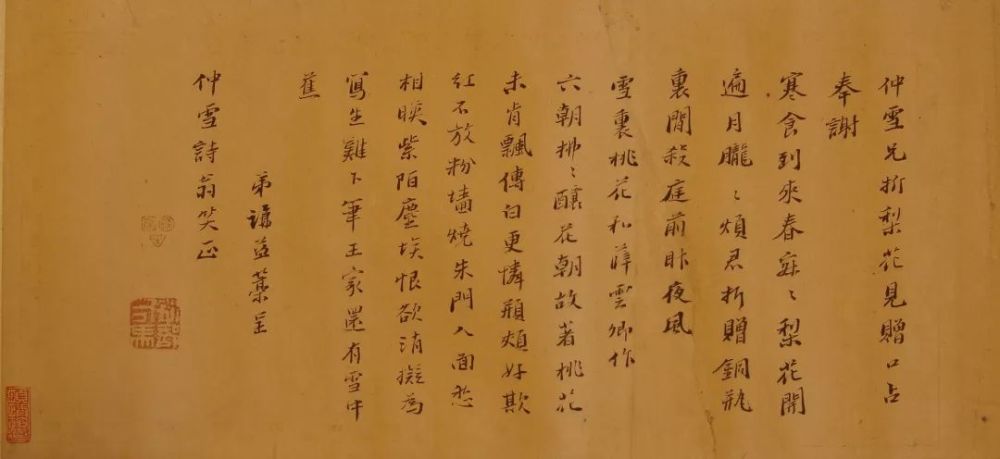 仲雪兄折梨花見贈口占
奉謝
寒食到來春寂〻梨花開
遍月朧〻煩君折贈銅瓶
裏閒殺庭前昨夜風
雪裏桃花和薛雲卿作
六朝拂〻釀花朝故著桃花
未肯飄傅白更憐頩頰好欺
紅不放粉墻燒朱門人面愁
相映紫陌塵埃恨欲消擬為
寫生難下筆王家還有雪中
蕉
弟謙益藁呈
仲雪詩翁笑正